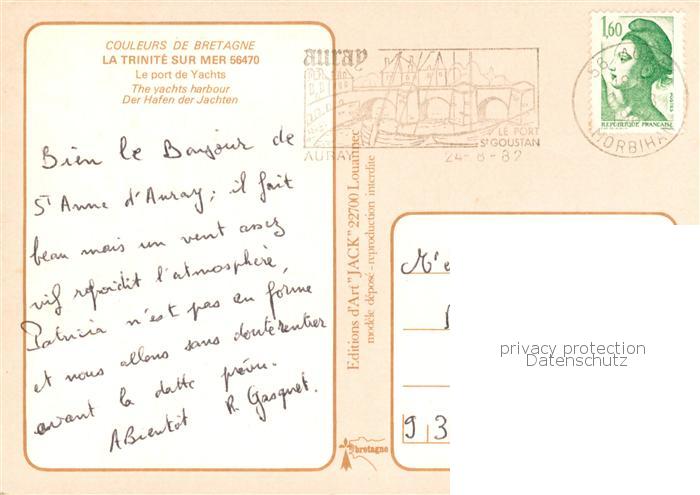 COULEURS DE BRETAGNE
LA TRINITÉ SUR MER 56470
Le port de Yachts
The yachts harbour
Der Hafen der Jachten
Bien le Bonjour de
St Anne d'Auray ; il fait
beau mais un vent assez
vif refroidit l'atmosphère,
Patricia n'est pas en forme
et nous allons sans doute rentrer
avant la datte prévu.
A Bientôt R. Gasquet.
auray
LE PORT
St GOUSTAN
AURAY
24-8-82
1,60
REPUBLIQUE FRANÇAISE
MORBIHAN
Editions d'Art "JACK" 22700 Louannec
modèle déposé - reproduction interdite
bretagne
93
privacy protection
Datenschutz